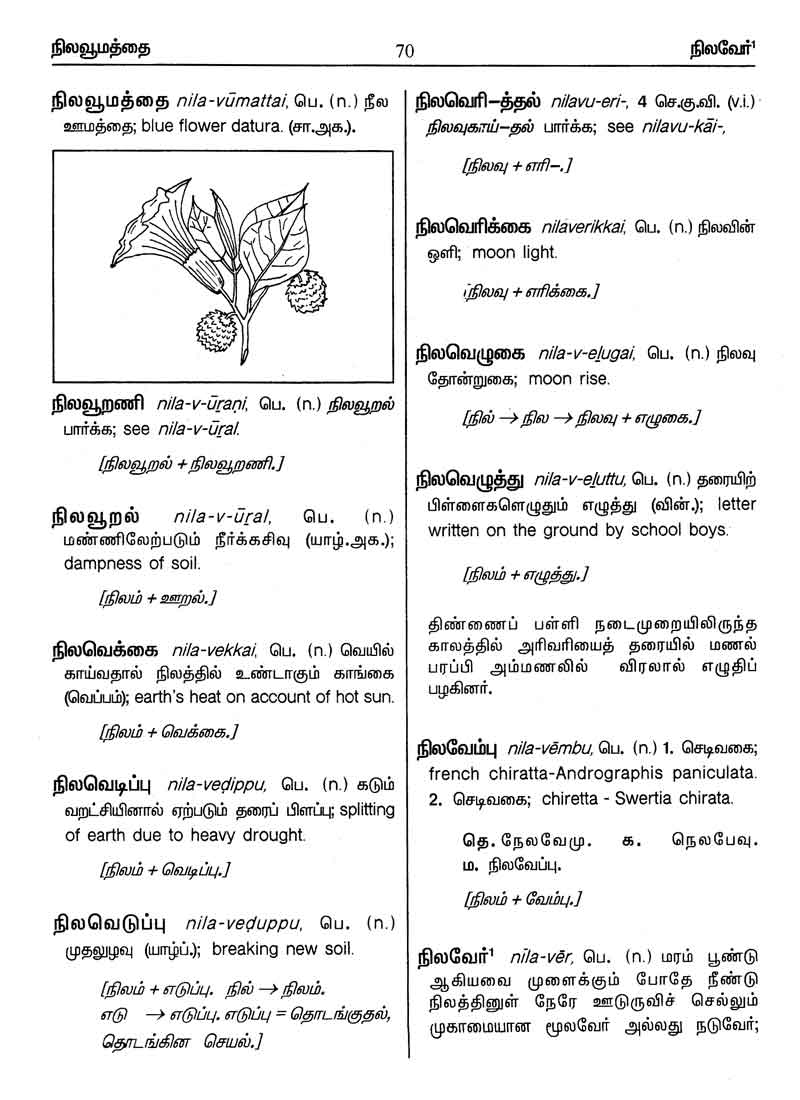 நிலவூமத்தை 70 நிலவேர்¹
நிலவூமத்தை nila-vūmattai, பெ. (n.) நீல
ஊமத்தை; blue flower datura. (சா.அக.).
நிலவூறணி nila-v-ūṟaṇi, பெ. (n.) நிலவூறல்
பார்க்க; see nila-v-ūṟal.
[நிலவூறல் + நிலவூறணி.]
நிலவூறல் nila-v-ūṟal, பெ. (n.)
மண்ணிலேற்படும் நீர்க்கசிவு (யாழ்.அக.);
dampness of soil.
[நிலம் + ஊறல்.]
நிலவெக்கை nila-vekkai, பெ. (n.) வெயில்
காய்வதால் நிலத்தில் உண்டாகும் காங்கை
(வெப்பம்); earth's heat on account of hot sun.
[நிலம் + வெக்கை.]
நிலவெடிப்பு nila-veḍippu, பெ. (n.) கடும்
வறட்சியினால் ஏற்படும் தரைப் பிளப்பு; splitting
of earth due to heavy drought.
[நிலம் + வெடிப்பு.]
நிலவெடுப்பு nila-veḍuppu, பெ. (n.)
முதலுழவு (யாழ்ப்.); breaking new soil.
[நிலம் + எடுப்பு. நில் → நிலம்.
எடு → எடுப்பு. எடுப்பு = தொடங்குதல்,
தொடங்கின செயல்.]
நிலவெரி-த்தல் nilavu-eri-, 4 செ.கு.வி. (v.i.)
நிலவுகாய்-தல் பார்க்க; see nilavu-kāi-,
[நிலவு + எரி-.]
நிலவெரிக்கை nilaverikkai, பெ. (n.) நிலவின்
ஒளி; moon light.
[நிலவு + எரிக்கை.]
நிலவெழுகை nila-v-eḻugai, பெ. (n.) நிலவு
தோன்றுகை; moon rise.
[நில் → நில → நிலவு + எழுகை.]
நிலவெழுத்து nila-v-eḻuttu, பெ. (n.) தரையிற்
பிள்ளைகளெழுதும் எழுத்து (வின்.); letter
written on the ground by school boys.
[நிலம் + எழுத்து.]
திண்ணைப் பள்ளி நடைமுறையிலிருந்த
காலத்தில் அரிவரியைத் தரையில் மணல்
பரப்பி அம்மணலில் விரலால் எழுதிப்
பழகினர்.
நிலவேம்பு nila-vēmbu, பெ. (n.) 1. செடிவகை;
french chiratta-Andrographis paniculata.
2. செடிவகை; chiretta - Swertia chirata.
தெ. நேலவேமு. க. நெலபேவு.
ம. நிலவேப்பு.
[நிலம் + வேம்பு.]
நிலவேர்¹ nila-vēr, பெ. (n.) மரம் பூண்டு
ஆகியவை முளைக்கும் போதே நீண்டு
நிலத்தினுள் நேரே ஊடுருவிச் செல்லும்
முகாமையான மூலவேர் அல்லது நடுவேர்;